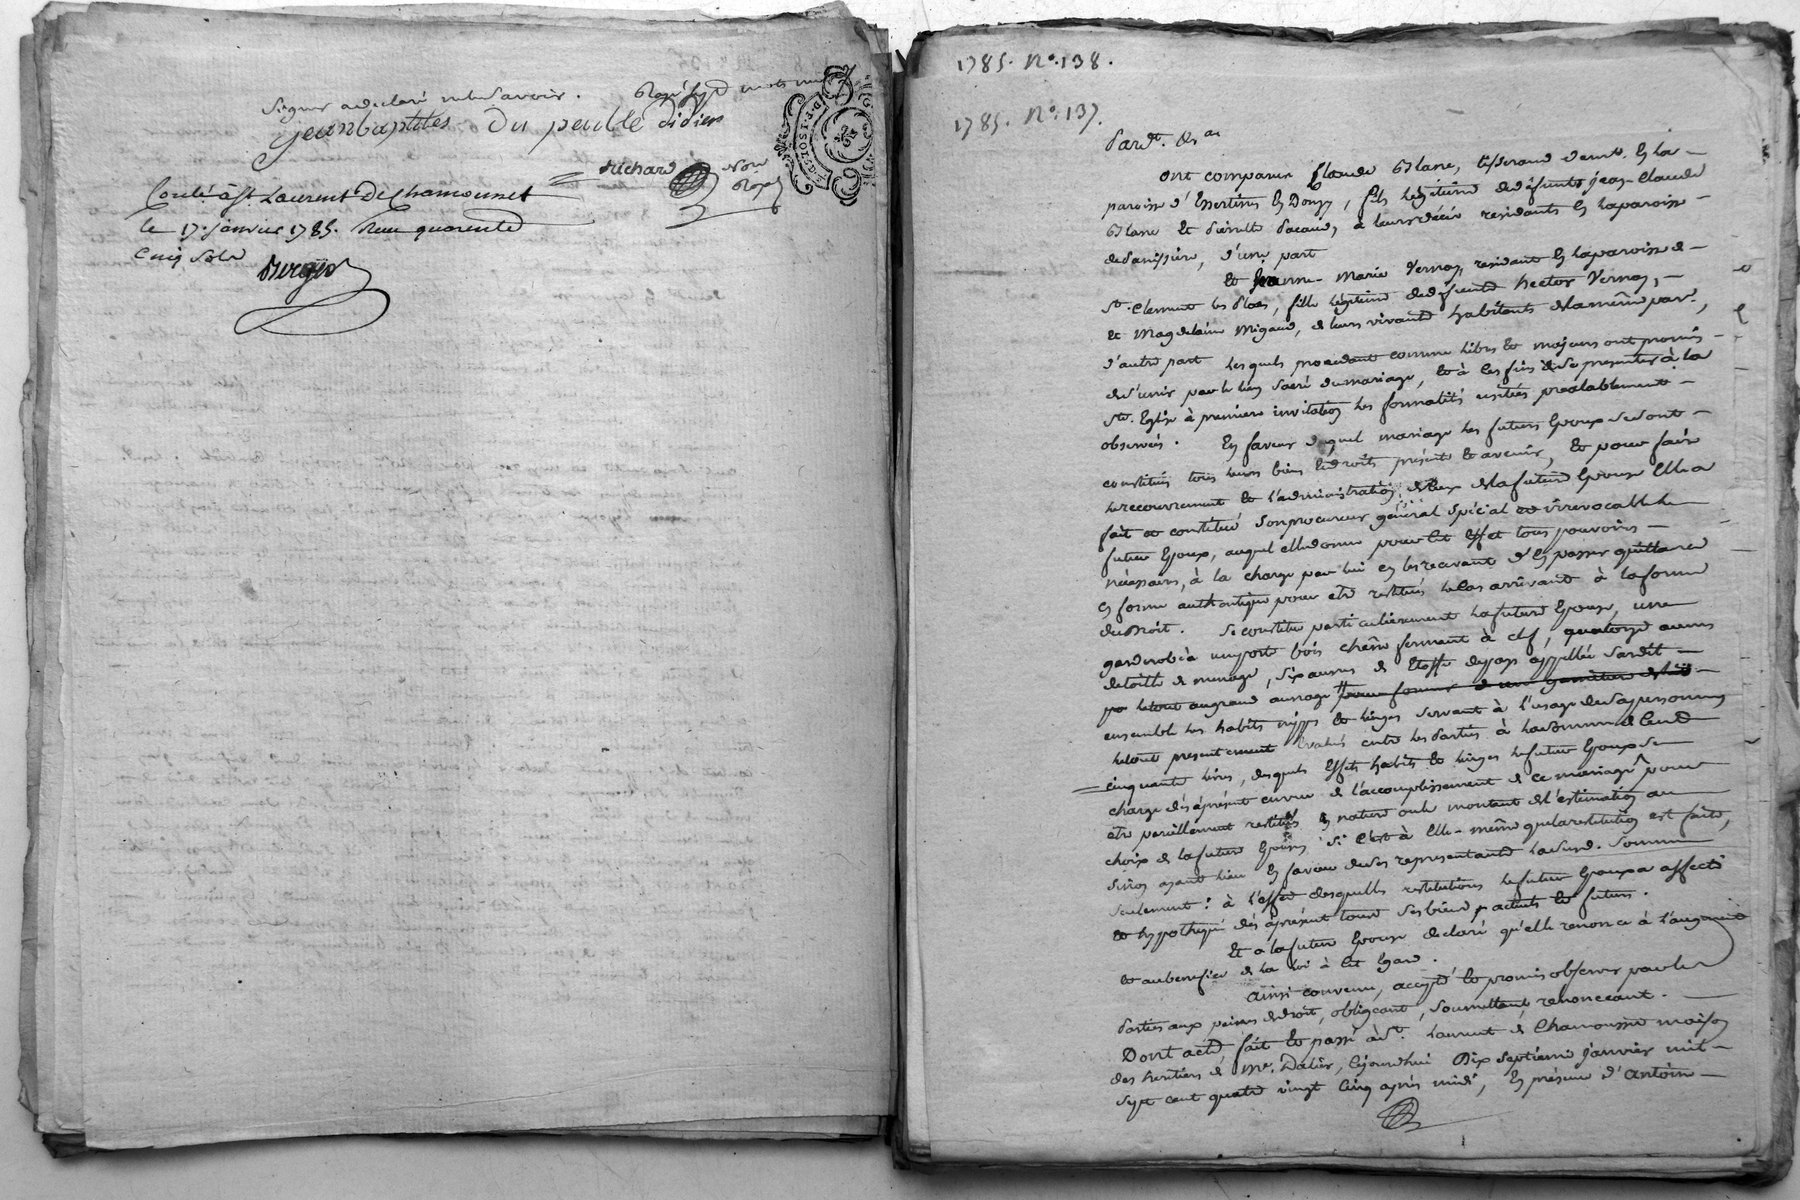 signer a declaré ne le savoir. Rayé sept mots nuls
jeanbaptites Du peuble didier
Richard Nore
Royal
Conlé à St. Laurent De Chamousset
le 17. janvier 1785. Reçu quarente
Cinq sols
Bergeo
1785. No. 138.
1785. No. 137.
Pardt. &a
ont comparu Claude Blanc, tisserand demt. En la
paroisse d'Essertines En Donzy, fils légitime de défunts jean-Claude
Blanc Et Pierrette Pacaud, à leurs décès residants En la paroisse
de Panissiere, d'une part
Et jeanne-Marie Vernay, residant En la paroisse de
St. Clement les Places, fille légitime de défunts hector Vernay,
Et Magdelaine Migaud, de leurs vivants habitants de la même par.,
d'autre part lesquels procedant comme libres Et majeurs ont promis
de s'unir par le lien sacré du mariage, Et à ces fins de se presenter à la
Ste. Eglise à premiere invitation les formalités usitées prealablement
observées. En faveur duquel mariage les futurs Epoux se sont
constitués tous leurs biens Et droits présents Et avenir, Et pour faire
le recouvrement Et l'administration de ceux de la future Epouse Elle a
fait et constitué son procureur général spécial et irrevocable le
futur Epoux, auquel elle donne pour cet effet tous pouvoirs
nécessaires, à la charge par lui en les recevant d'En passer quittance
En forme authentique pour etre restitués le cas arrivant à la forme
du Droit. Se constitue particulierement la future Epouse, une
garderobe à une porte bois chêne fermant à clef, quatorze aunes
de toille de menage, six aunes de Etoffe du pays appellée Sardit
le tout au grand aunage pour former une garniture de lit
ensemble les habits nippes Et linges servant à l'usage de sa personne
le tout presentement Evalué entre les parties à la somme de Cent
cinquante livres, desquels Effets habits Et linges le futur Epoux se
charge dès à présent en vue de l'accomplissement de ce mariage pour
etre pareillement restitués En nature ou le montant de l'estimation au
choix de la future Epouse si c'est à Elle-même que la restitution est faite,
sinon ayant lieu En faveur de ses representants la susd. somme
seulement: à l'effet desquelles restitutions le futur Epoux a affecté
Et hypothequé dès à présent tous ses biens présents Et futurs.
Et a la future Epouse declaré qu'elle renonce à l'augment
Et au benefice de la loi à cet Egard.
Ainsi convenu, accepté Et promis observer par les
Parties aux peines de droit, obligeant, soumettant, renonceant.
Dont acte fait Et passé à St. Laurent de Chamousset maison
des heritiers de Me. Dalier, cejourdhui Dix septieme janvier mil
sept cent quatre vingt Cinq après midi, En présence d'Antoin